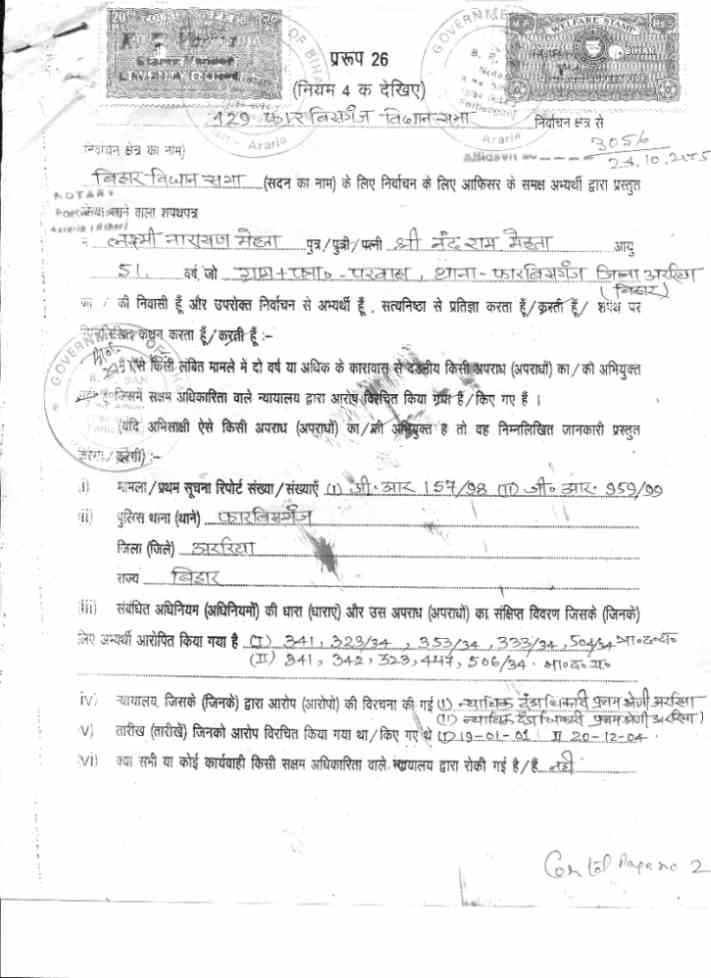 WELFARE STAMP
BIHAR
प्ररूप 26
(नियम 4 क देखिए)
129 फारबिसगंज विधान सभा निर्वाचन क्षेत्र से
Araria
Araria
3056
24.10.2005
निर्वाचन क्षेत्र का नाम)
बिहार विधान सभा (सदन का नाम) के लिए निर्वाचन के लिए आफिसर के समक्ष अभ्यर्थी द्वारा प्रस्तुत
NOTARY
किया जाने वाला शपथपत्र
लक्ष्मी नारायण मेहता पुत्र/पुत्री/पत्नी श्री नंद राम मेहता आयु
51. वर्ष, जो ग्राम+पो० - परवाहा, थाना - फारबिसगंज जिला अररिया
(बिहार)
का / की निवासी हूँ और उपरोक्त निर्वाचन से अभ्यर्थी हूँ, सत्यनिष्ठा से प्रतिज्ञा करता हूँ/करती हूँ/ शपथ पर
कथन करता हूँ/करती हूँ :-
ऐसे किसी लंबित मामले में दो वर्ष या अधिक के कारावास से दंडनीय किसी अपराध (अपराधों) का/की अभियुक्त
जिसमें सक्षम अधिकारिता वाले न्यायालय द्वारा आरोप विरचित किया गया है/किए गए हैं ।
(यदि अभिसाक्षी ऐसे किसी अपराध (अपराधों) का/की अभियुक्त है तो वह निम्नलिखित जानकारी प्रस्तुत
करेगा/करेगी) :-
i) मामला/प्रथम सूचना रिपोर्ट संख्या/संख्याएँ (I) जी.आर 157/98 (II) जी० आर. 959/99
ii) पुलिस थाना (थाने) फारबिसगंज
जिला (जिले) अररिया
राज्य बिहार
iii) संबंधित अधिनियम (अधिनियमों) की धारा (धाराएं) और उस अपराध (अपराधों) का संक्षिप्त विवरण जिसके (जिनके)
लिए अभ्यर्थी आरोपित किया गया है (I) 341, 323/34, 353/34, 333/34, 504/34 भा०द०वि०
(II) 341, 342, 323, 447, 506/34. भा०द०वि०
iv) न्यायालय, जिसके (जिनके) द्वारा आरोप (आरोपों) की विरचना की गई (I) न्यायिक दंडाधिकारी प्रथम श्रेणी अररिया
(II) न्यायिक दंडाधिकारी प्रथम श्रेणी अररिया)
v) तारीख (तारीखें) जिनको आरोप विरचित किया गया था/किए गए थे (I) 19-01-01 II 20-12-04.
vi) क्या सभी या कोई कार्यवाही किसी सक्षम अधिकारिता वाले न्यायालय द्वारा रोकी गई है/हैं नहीं
Contd Page no 2